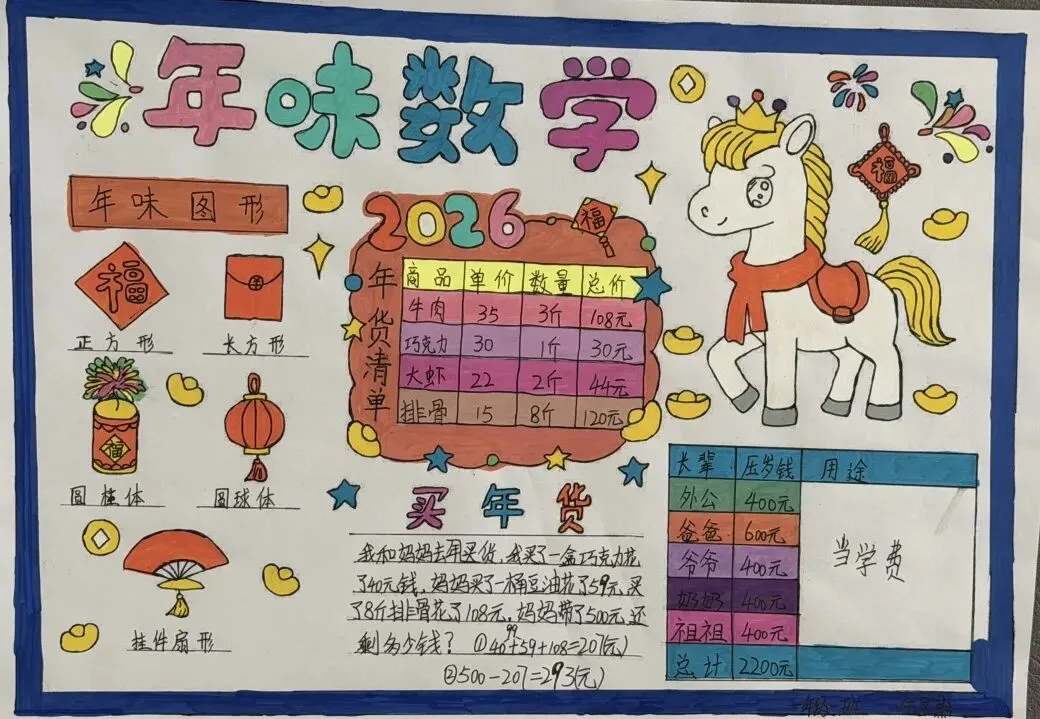 年味数学
年味图形
福
正方形
长方形
福
圆柱体
圆球体
挂件扇形
2026
福
年货清单
商品 单价 数量 总价
牛肉 35 3斤 108元
巧克力 30 1斤 30元
大虾 22 2斤 44元
排骨 15 8斤 120元
福
买年货
我和妈妈去用买货,我买了一盒巧克力花
了40元钱,妈妈买了一桶豆油花了59元,买
了8斤排骨花了108元,妈妈带了500元,还
剩多少钱? ①40+59+108=207(元)
99
②500-207=293(元)
长辈 压岁钱 用途
外公 400元
爸爸 600元
爷爷 400元
奶奶 400元
祖祖 400元
总计 2200元
当学费
年级 班